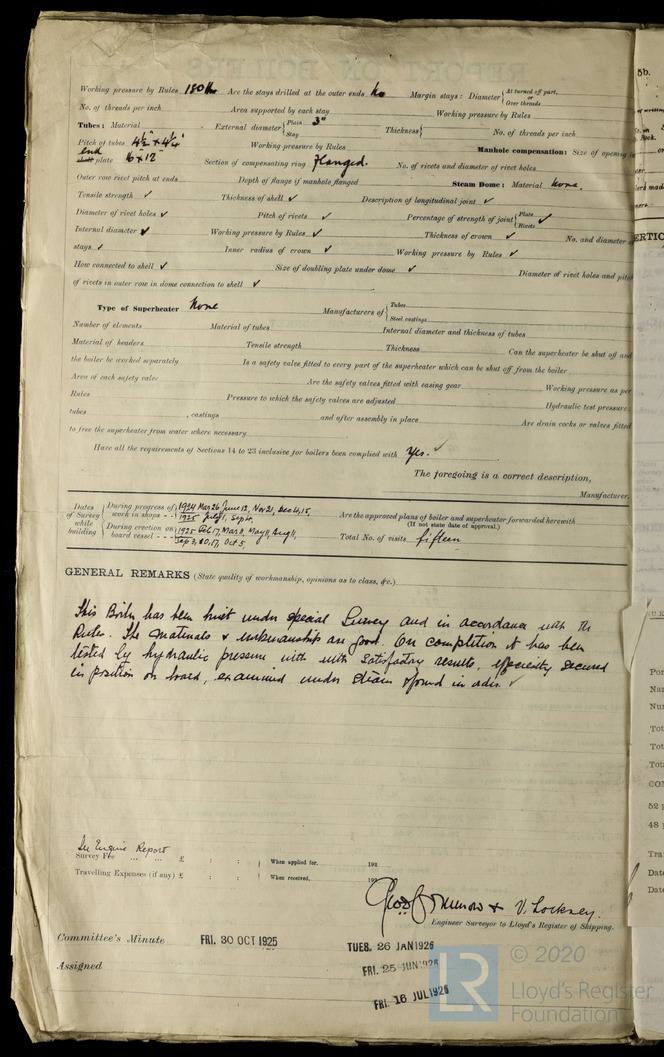 Working pressure by Rules 180 lbs Are the stays drilled at the outer ends No Margin stays: Diameter { At turned off part, or Over threads
No. of threads per inch Area supported by each stay Working pressure by Rules
Tubes: Material External diameter { Plain 3" Stay Thickness { No. of threads per inch
Pitch of tubes 4½" x 4¼" Working pressure by Rules Manhole compensation: Size of opening in
end shell plate 16 x 12 Section of compensating ring Flanged. No. of rivets and diameter of rivet holes
Outer row rivet pitch at ends Depth of flange if manhole flanged Steam Dome: Material None.
Tensile strength ✓ Thickness of shell ✓ Description of longitudinal joint ✓
Diameter of rivet holes ✓ Pitch of rivets ✓ Percentage of strength of joint { Plate Rivets ✓
Internal diameter ✓ Working pressure by Rules ✓ Thickness of crown ✓ No. and diameter
stays ✓ Inner radius of crown ✓ Working pressure by Rules ✓
How connected to shell ✓ Size of doubling plate under dome ✓ Diameter of rivet holes and pitch
of rivets in outer row in dome connection to shell ✓
Type of Superheater None Manufacturers of { Tubes Steel castings
Number of elements Material of tubes Internal diameter and thickness of tubes
Material of headers Tensile strength Thickness Can the superheater be shut off and
the boiler be worked separately Is a safety valve fitted to every part of the superheater which can be shut off from the boiler
Area of each safety valve Are the safety valves fitted with easing gear Working pressure as per
Rules Pressure to which the safety valves are adjusted Hydraulic test pressure:
tubes , castings and after assembly in place Are drain cocks or valves fitted
to free the superheater from water where necessary
Have all the requirements of Sections 14 to 23 inclusive for boilers been complied with Yes. ✓
The foregoing is a correct description,
Manufacturer.
Dates of Survey while building { During progress of work in shops - - { 1924 Mar 26 June 12, Nov 21, Dec 4, 15 1925 July 1, Sep 4
During erection on board vessel - - - { 1925 Feb 17, Mar 11, May 11, Aug 11, Sep 3, 10, 17, Oct 5
Are the approved plans of boiler and superheater forwarded herewith
(If not state date of approval.)
Total No. of visits fifteen
GENERAL REMARKS (State quality of workmanship, opinions as to class, &c.)
This Boiler has been built under special Survey and in accordance with the
Rules. The materials & workmanship are good. On completion it has been
tested by hydraulic pressure with with satisfactory results, efficiently secured
in position on board, examined under steam & found in order. ✓
See Engine Report
Survey Fee ... ... £ : : When applied for, 192
Travelling Expenses (if any) £ : : When received, 192
& V. Lockney.
Engineer Surveyor to Lloyd's Register of Shipping.
Committee's Minute FRI. 30 OCT 1925 TUES. 26 JAN 1926
Assigned FRI. 25 JUN 1926
FRI. 16 JUL 1926
LR © 2020
Lloyd's Register
Foundation
5b.
Por
Nam
Nur
Tot
Tota
Tota
CON
52 p
48 p
Tra
Date
Date